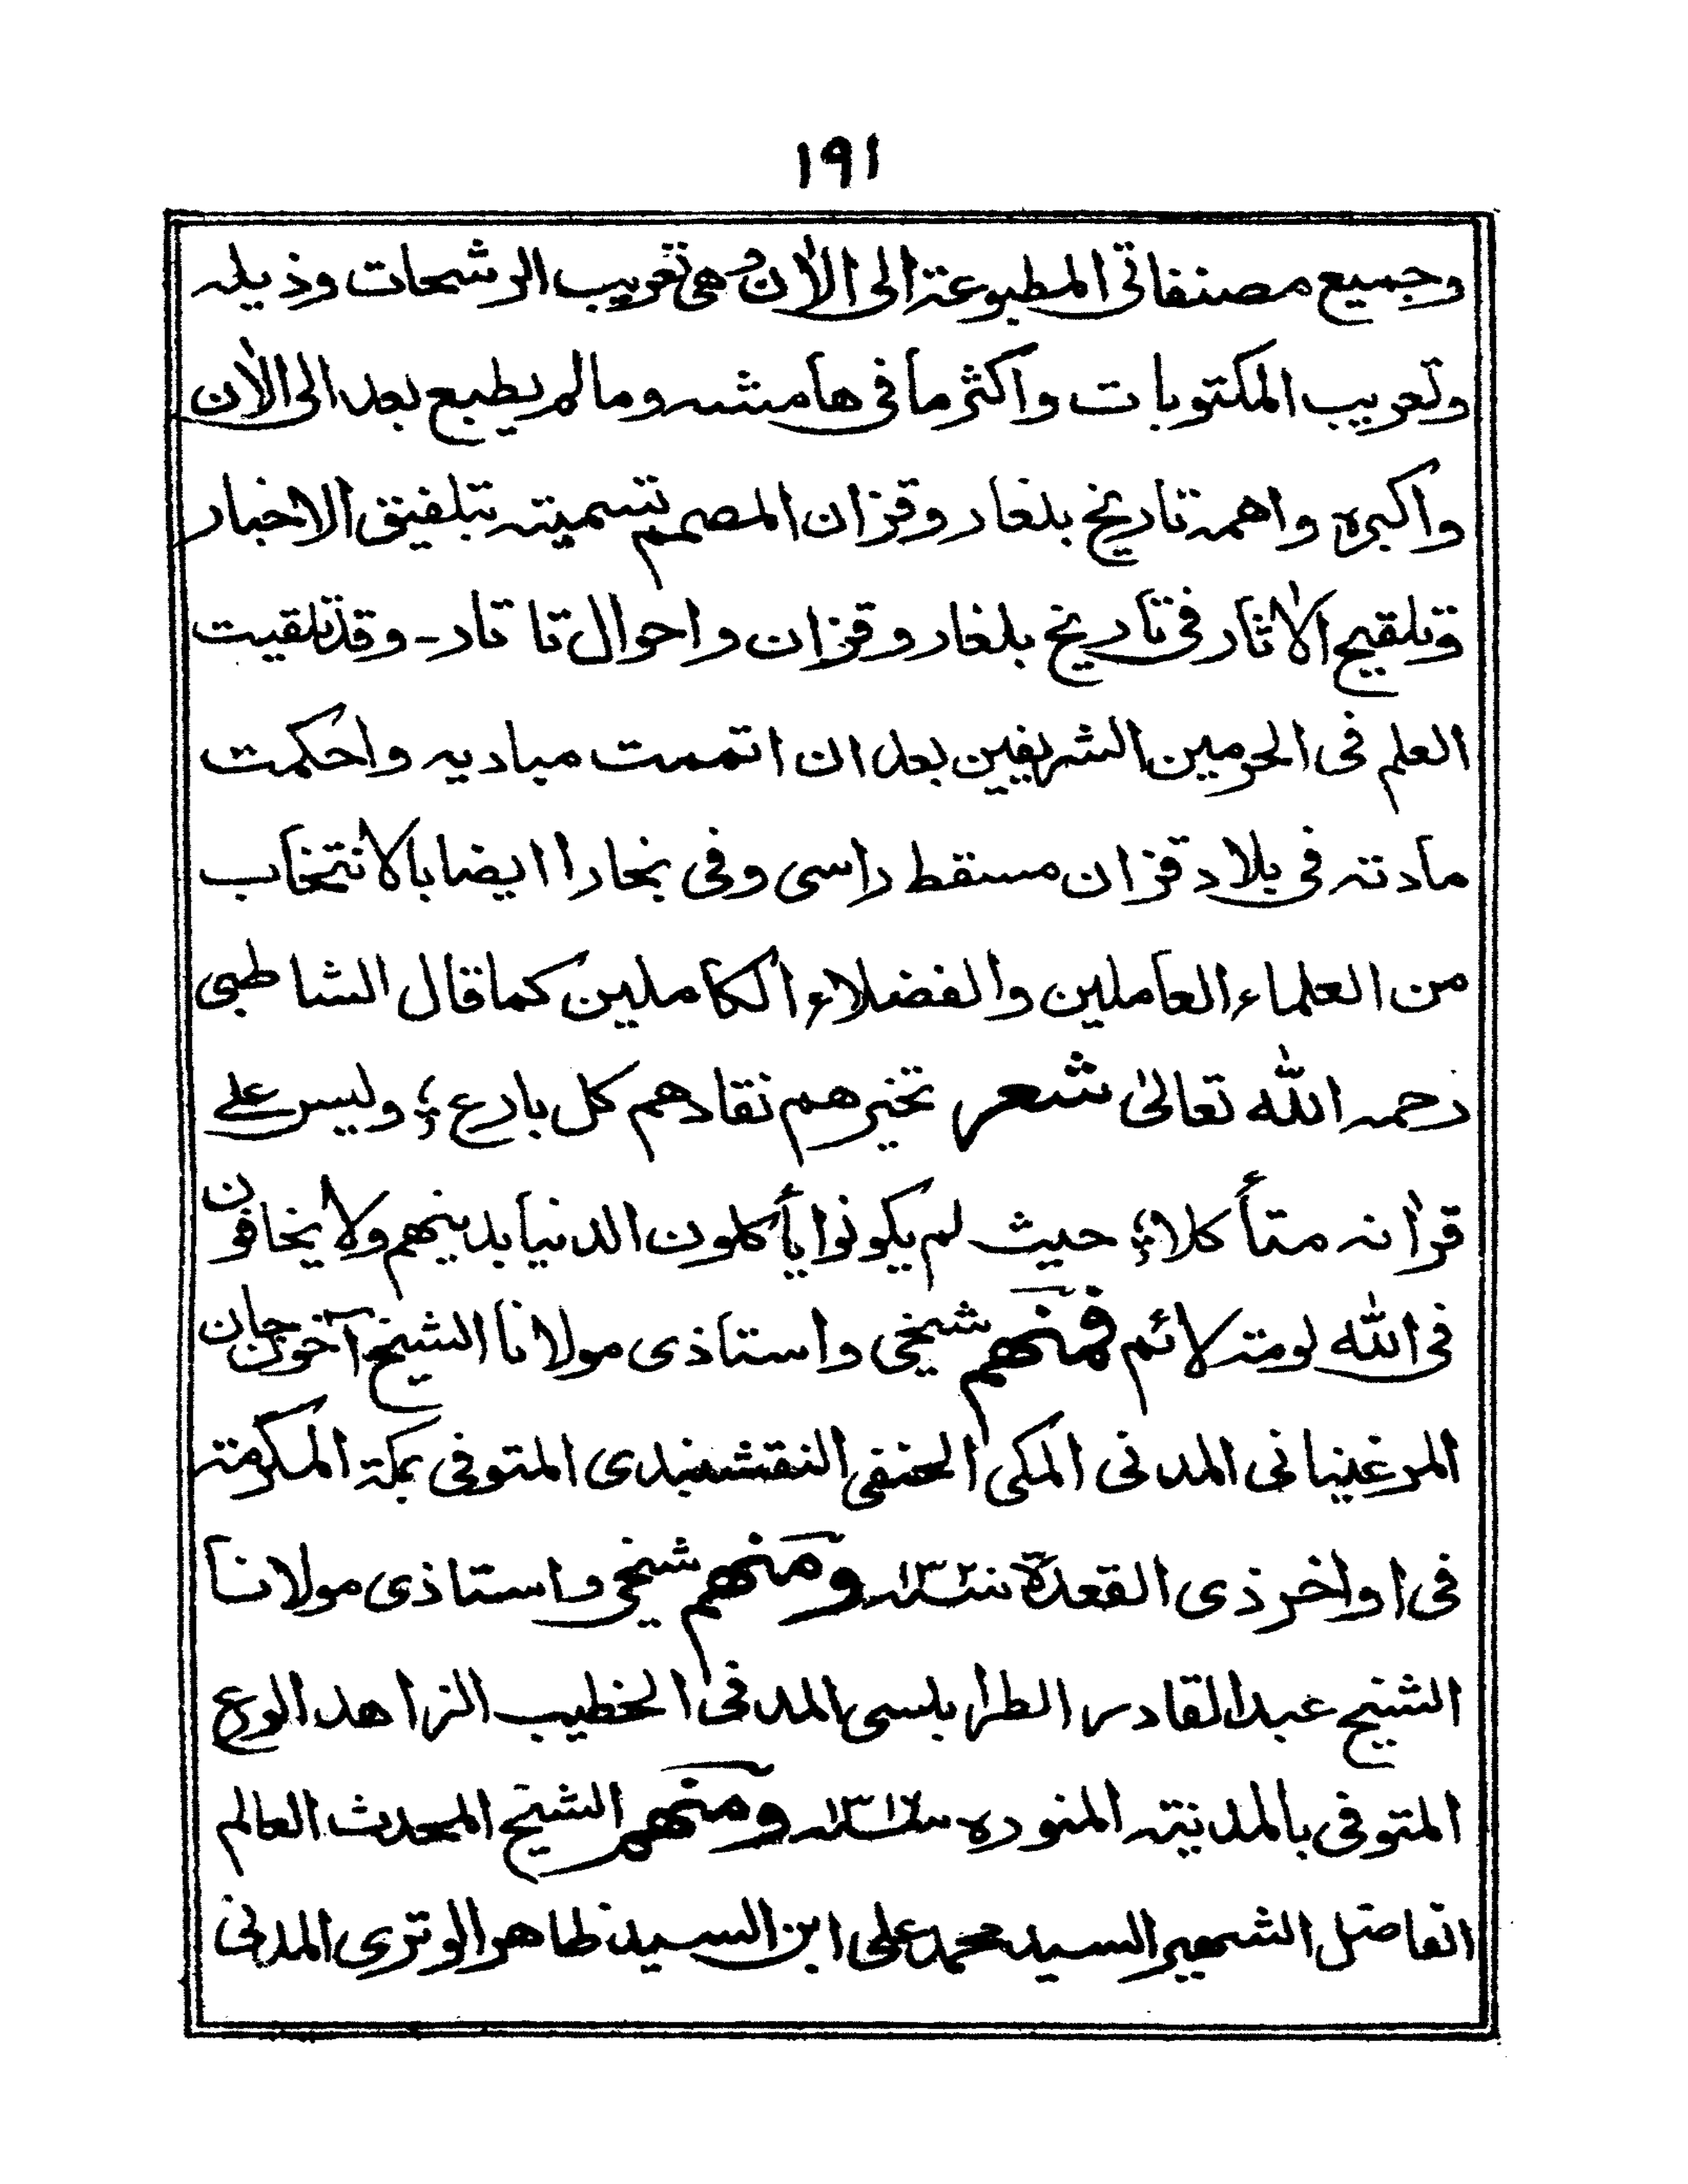 ١٩١
وجميع مصنفاتى المطبوعة الى الأن وهى تعريب الرشحات وذيله
وتعريب المكتوبات واكثر ما فى هامشه وما لم يطبع بعد الى الأن
واكبره واهمه تاريخ بلغار وقزان المصمم تسميته بتلفيق الاخبار
وتلقيح الأثار فى تاريخ بلغار وقزان واحوال تاتار - وقد تلقيت
العلم فى الحرمين الشريفين بعد ان اتممت مباديه واحكمت
مادته فى بلاد قزان مسقط راسى وفى بخارا ايضا بالانتخاب
من العلماء العاملين والفضلاء الكاملين كما قال الشاطبى
رحمه الله تعالىٰ شعر تخيرهم نقادهم كل بارع ؛ وليس علے
قرأنه متأكلا ؛ حيث لم يكونوا يأكلون الدنيا بدينهم ولا يخافون
فى الله لومة لائم فمنهم شيخى واستاذى مولانا الشيخ آخون جان
المرغينانى المدنى المكى الحنفى النقشبندى المتوفى بمكة المكرمة
فى اواخر ذى القعدة سنة ١٣٢٠ ومنهم شيخى واستاذى مولانا
الشيخ عبد القادر الطرابلسى المدنى الخطيب الزاهد الورع
المتوفى بالمدينة المنوره ومنهم الشيخ المحدث العالم
الفاضل الشهير السيد محمد على ابن السيد ظاهر الوترى المدنى